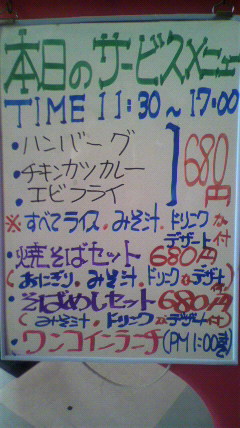 本日のサービスメニュー
TIME 11:30～17:00
・ハンバーグ
・チキンカツカレー
・エビフライ
680円
※すべてライス・みそ汁・ドリンクかデザート付
・焼そばセット 680円
(おにぎり・みそ汁・ドリンクかデザート付)
・そばめしセット 680円
(みそ汁・ドリンクかデザート付)
・ワンコインランチ(PM1:00まで)